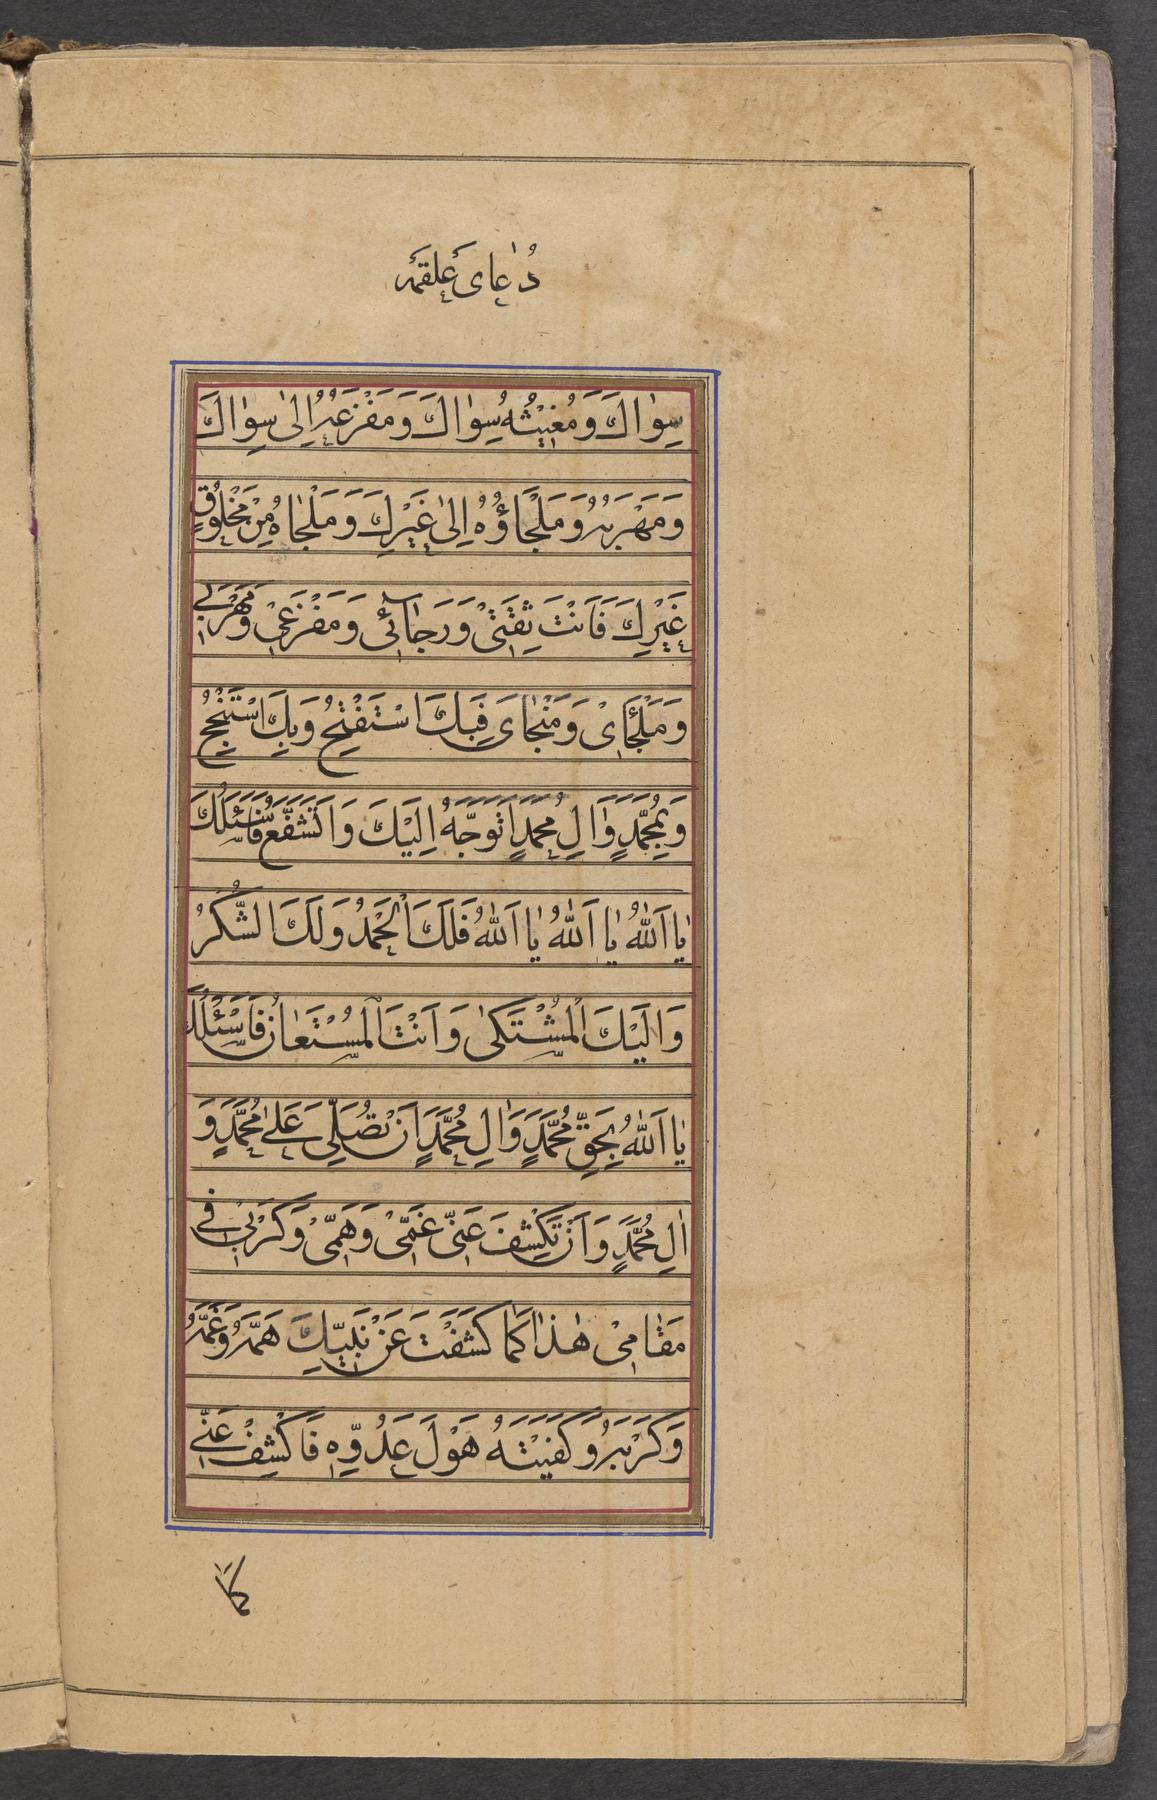 دُعای عَلقَمَه
سِوٰاكَ وَمُغیٖثُهُ سِوٰاكَ وَمَفْزَعُهُ اِلیٰ سِوٰاكَ
وَمَهْرَبُهُ وَمَلْجَاؤُهُ اِلیٰ غَیْرِكَ وَمَلْجٰاهُ مِنْ مَخْلُوقٍ
غَیْرِكَ فَاَنْتَ ثِقَتیٖ وَرَجٰائیٖ وَمَفْزَعیٖ وَمَهْرَبیٖ
وَمَلْجَایْ وَمَنْجٰایَ فَبِكَ اَسْتَفْتِحُ وَبِكَ اَسْتَنْجِحُ
وَبِمُحَمَّدٍ وَاٰلِ مُحَمَّدٍ اَتَوَجَّهُ اِلَیْكَ وَاَتَشَفَّعُ فَاَسْئَلُكَ
یٰا اَللّٰهُ یٰا اَللّٰهُ یٰا اَللّٰهُ فَلَكَ الْحَمْدُ وَلَكَ الشُّكْرُ
وَاِلَیْكَ الْمُشْتَكیٰ وَاَنْتَ الْمُسْتَعٰانُ فَاَسْئَلُكَ
یٰا اَللّٰهُ بِحَقِّ مُحَمَّدٍ وَاٰلِ مُحَمَّدٍ اَنْ تُصَلِّیَ عَلیٰ مُحَمَّدٍ وَ
اٰلِ مُحَمَّدٍ وَاَنْ تَكْشِفَ عَنّیٖ غَمّیٖ وَهَمّیٖ وَكَرْبیٖ فیٖ
مَقٰامیٖ هٰذٰا كَمٰا كَشَفْتَ عَنْ نَبِیِّكَ هَمَّهُ وَغَمَّهُ
وَكَرْبَهُ وَكَفَیْتَهُ هَوْلَ عَدُوِّهِ فَاكْشِفْ عَنّیٖ
كَمٰا